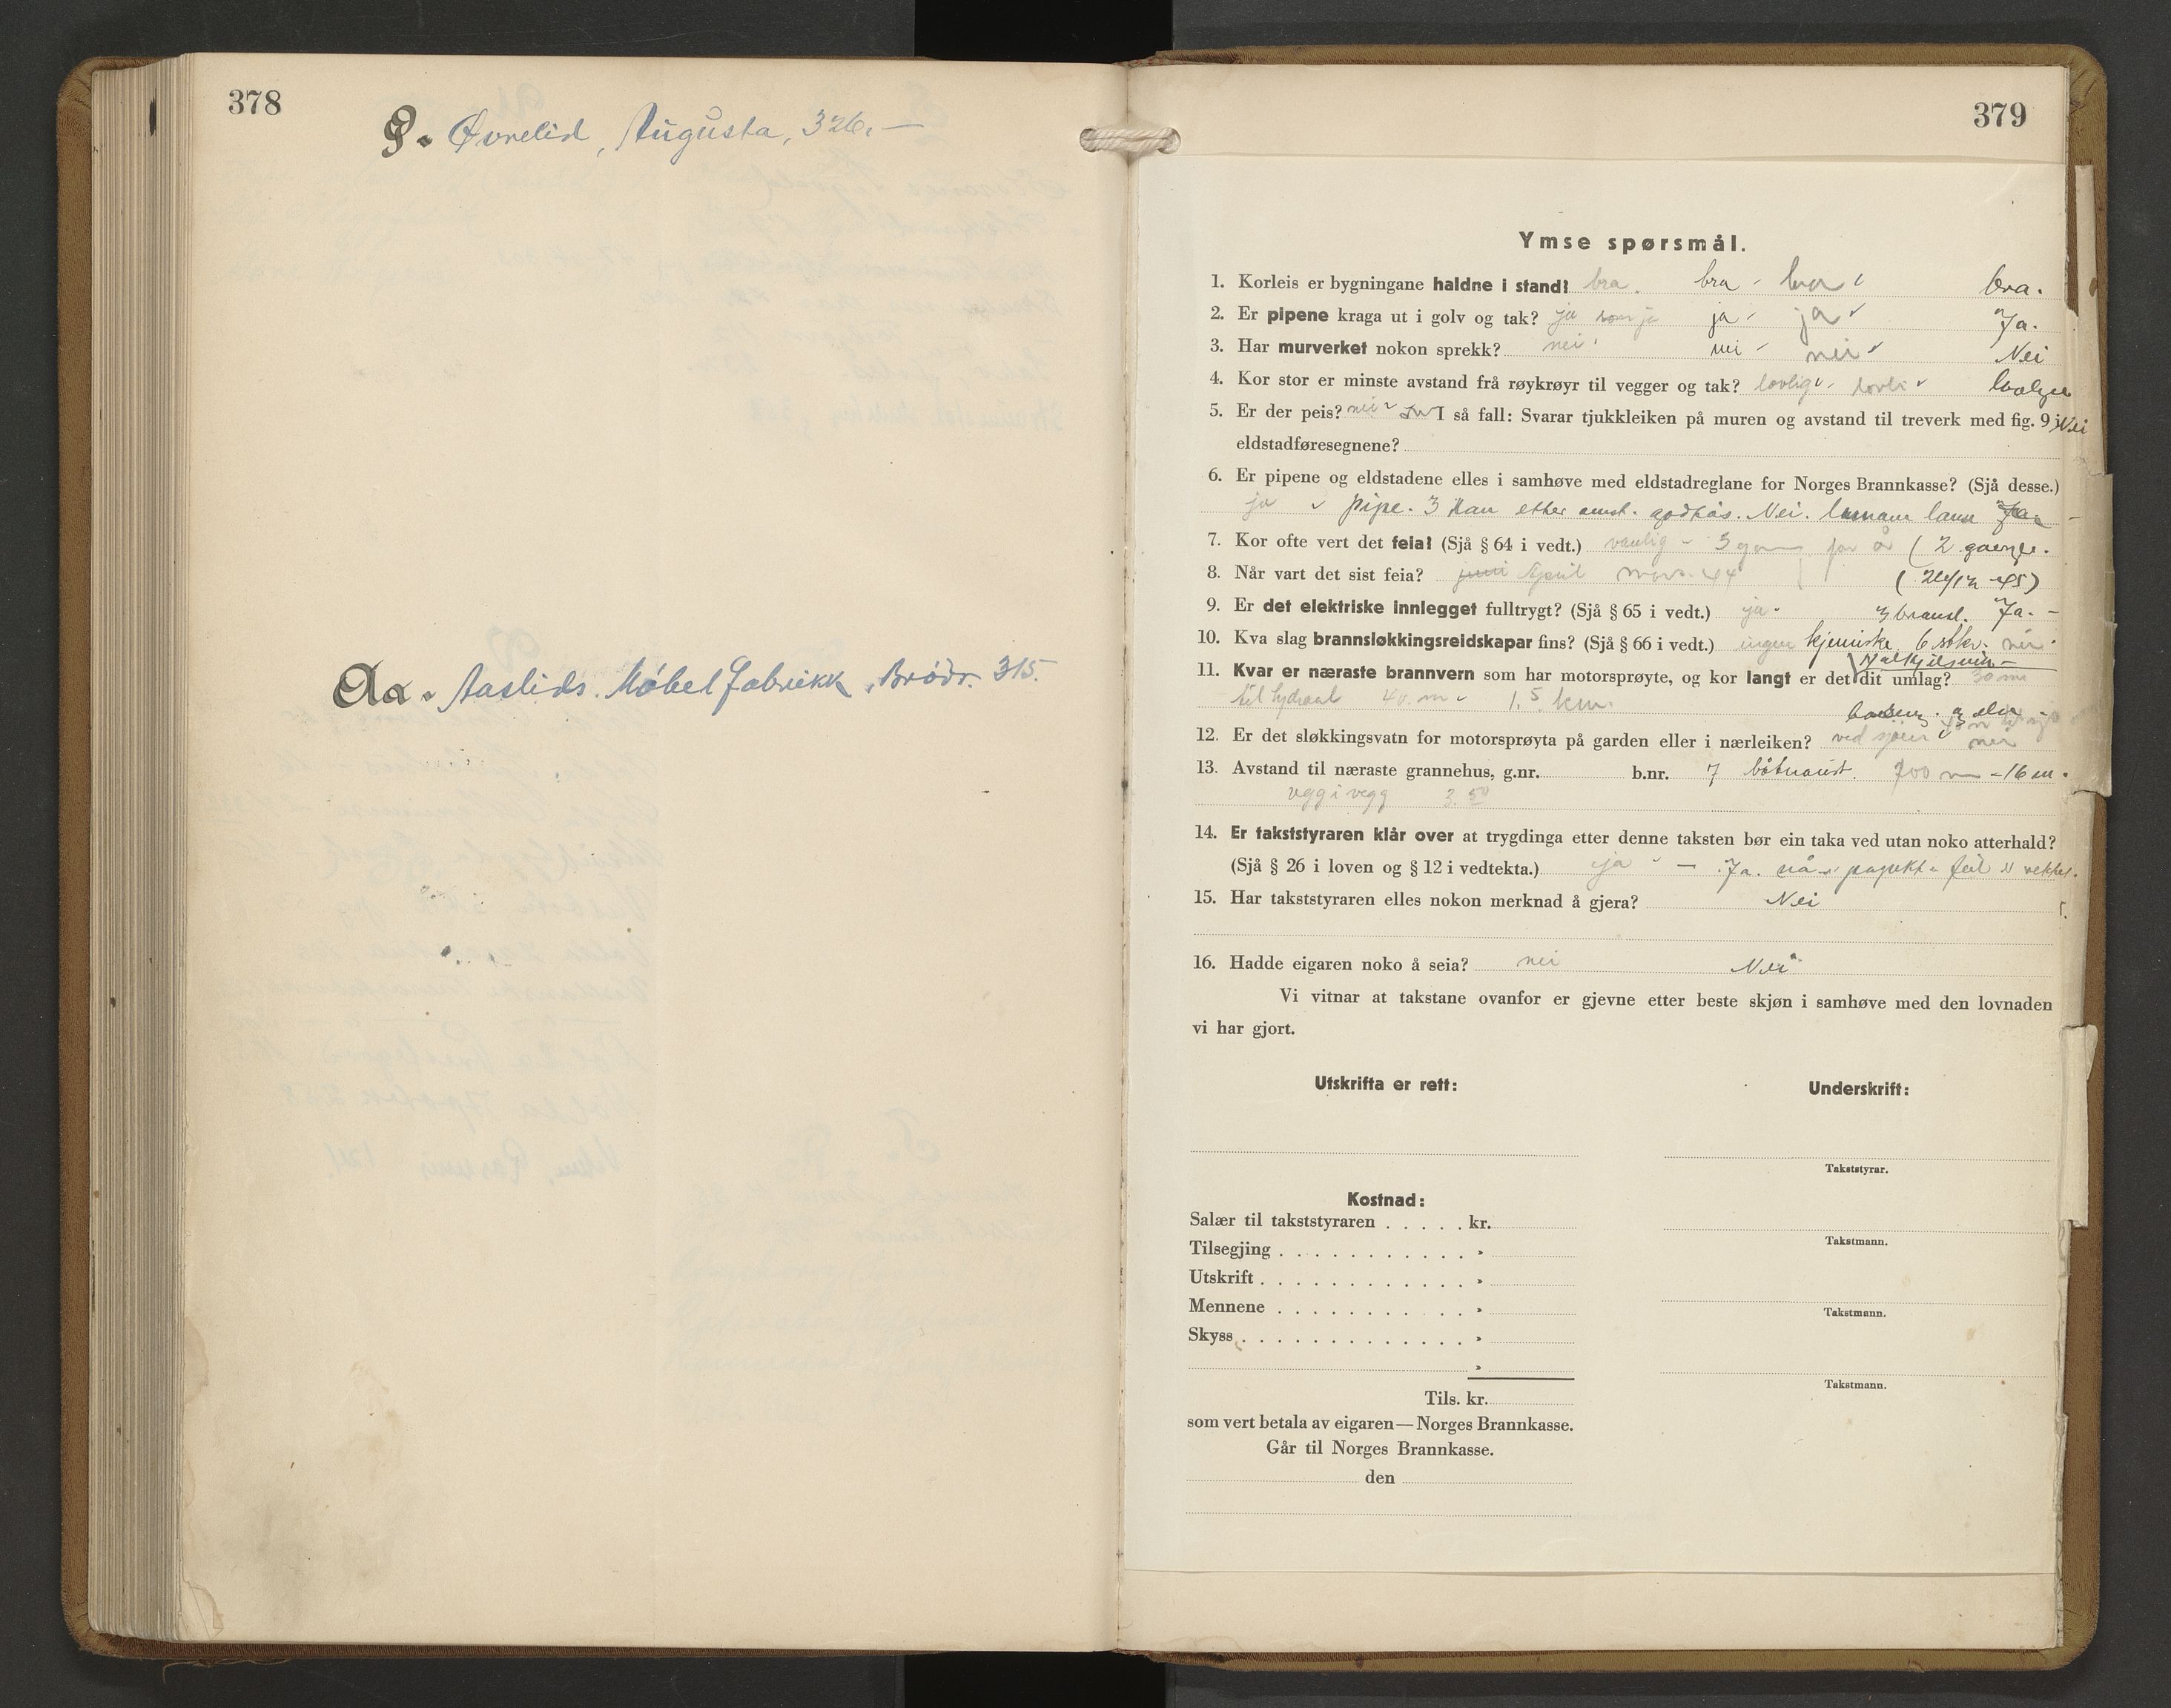 378
Ø. Øvrelid, Augusta, 326.—
Aa. Aaslids Møbelfabrikk, Brødr. 315.
379
Ymse spørsmål.
1. Korleis er bygningane haldne i stand? bra. bra bra bra.
2. Er pipene kraga ut i golv og tak? ja ja ja ja Ja.
3. Har murverket nokon sprekk? nei nei nei Nei
4. Kor stor er minste avstand frå røykrøyr til vegger og tak? lovlig
5. Er der peis? nei I så fall: Svarar tjukkleiken på muren og avstand til treverk med fig. 9 i Nei
eldstadføresegnene?
6. Er pipene og eldstadene elles i samhøve med eldstadreglane for Norges Brannkasse? (Sjå desse.)
ja pipe. 3 etter Nei.
7. Kor ofte vert det feia? (Sjå § 64 i vedt.) vanlig 3 år (2 gaenge.
8. Når vart det sist feia? April mars. 44
9. Er det elektriske innlegget fulltrygt? (Sjå § 65 i vedt.) ja. Ja. -
10. Kva slag brannsløkkingsreidskapar fins? (Sjå § 66 i vedt.) ingen kjemiske 6 stkr. nei
11. Kvar er næraste brannvern som har motorsprøyte, og kor langt er det dit umlag? 30 m
til hydrant 40 m 1,5 km.
12. Er det sløkkingsvatn for motorsprøyta på garden eller i nærleiken? ved sjøen nei
13. Avstand til næraste grannehus, g.nr. b.nr. 7 båtnaust. - 16 m.
vegg i vegg 3.50
14. Er takststyraren klår over at trygdinga etter denne taksten bør ein taka ved utan noko atterhald?
(Sjå § 26 i loven og § 12 i vedtekta.) ja - Ja.
15. Har takststyraren elles nokon merknad å gjera? Nei
16. Hadde eigaren noko å seia? nei Nei
Vi vitnar at takstane ovanfor er gjevne etter beste skjøn i samhøve med den lovnaden
vi har gjort.
Utskrifta er rett:
Underskrift:
Takststyrar.
Kostnad:
Salær til takststyraren . . . . . kr.
Takstmann.
Tilsegjing . . . . . . . . . . . »
Utskrift . . . . . . . . . . . . »
Mennene . . . . . . . . . . . »
Takstmann.
Skyss . . . . . . . . . . . . . »
»
Takstmann.
Tils. kr.
som vert betala av eigaren—Norges Brannkasse.
Går til Norges Brannkasse.
den